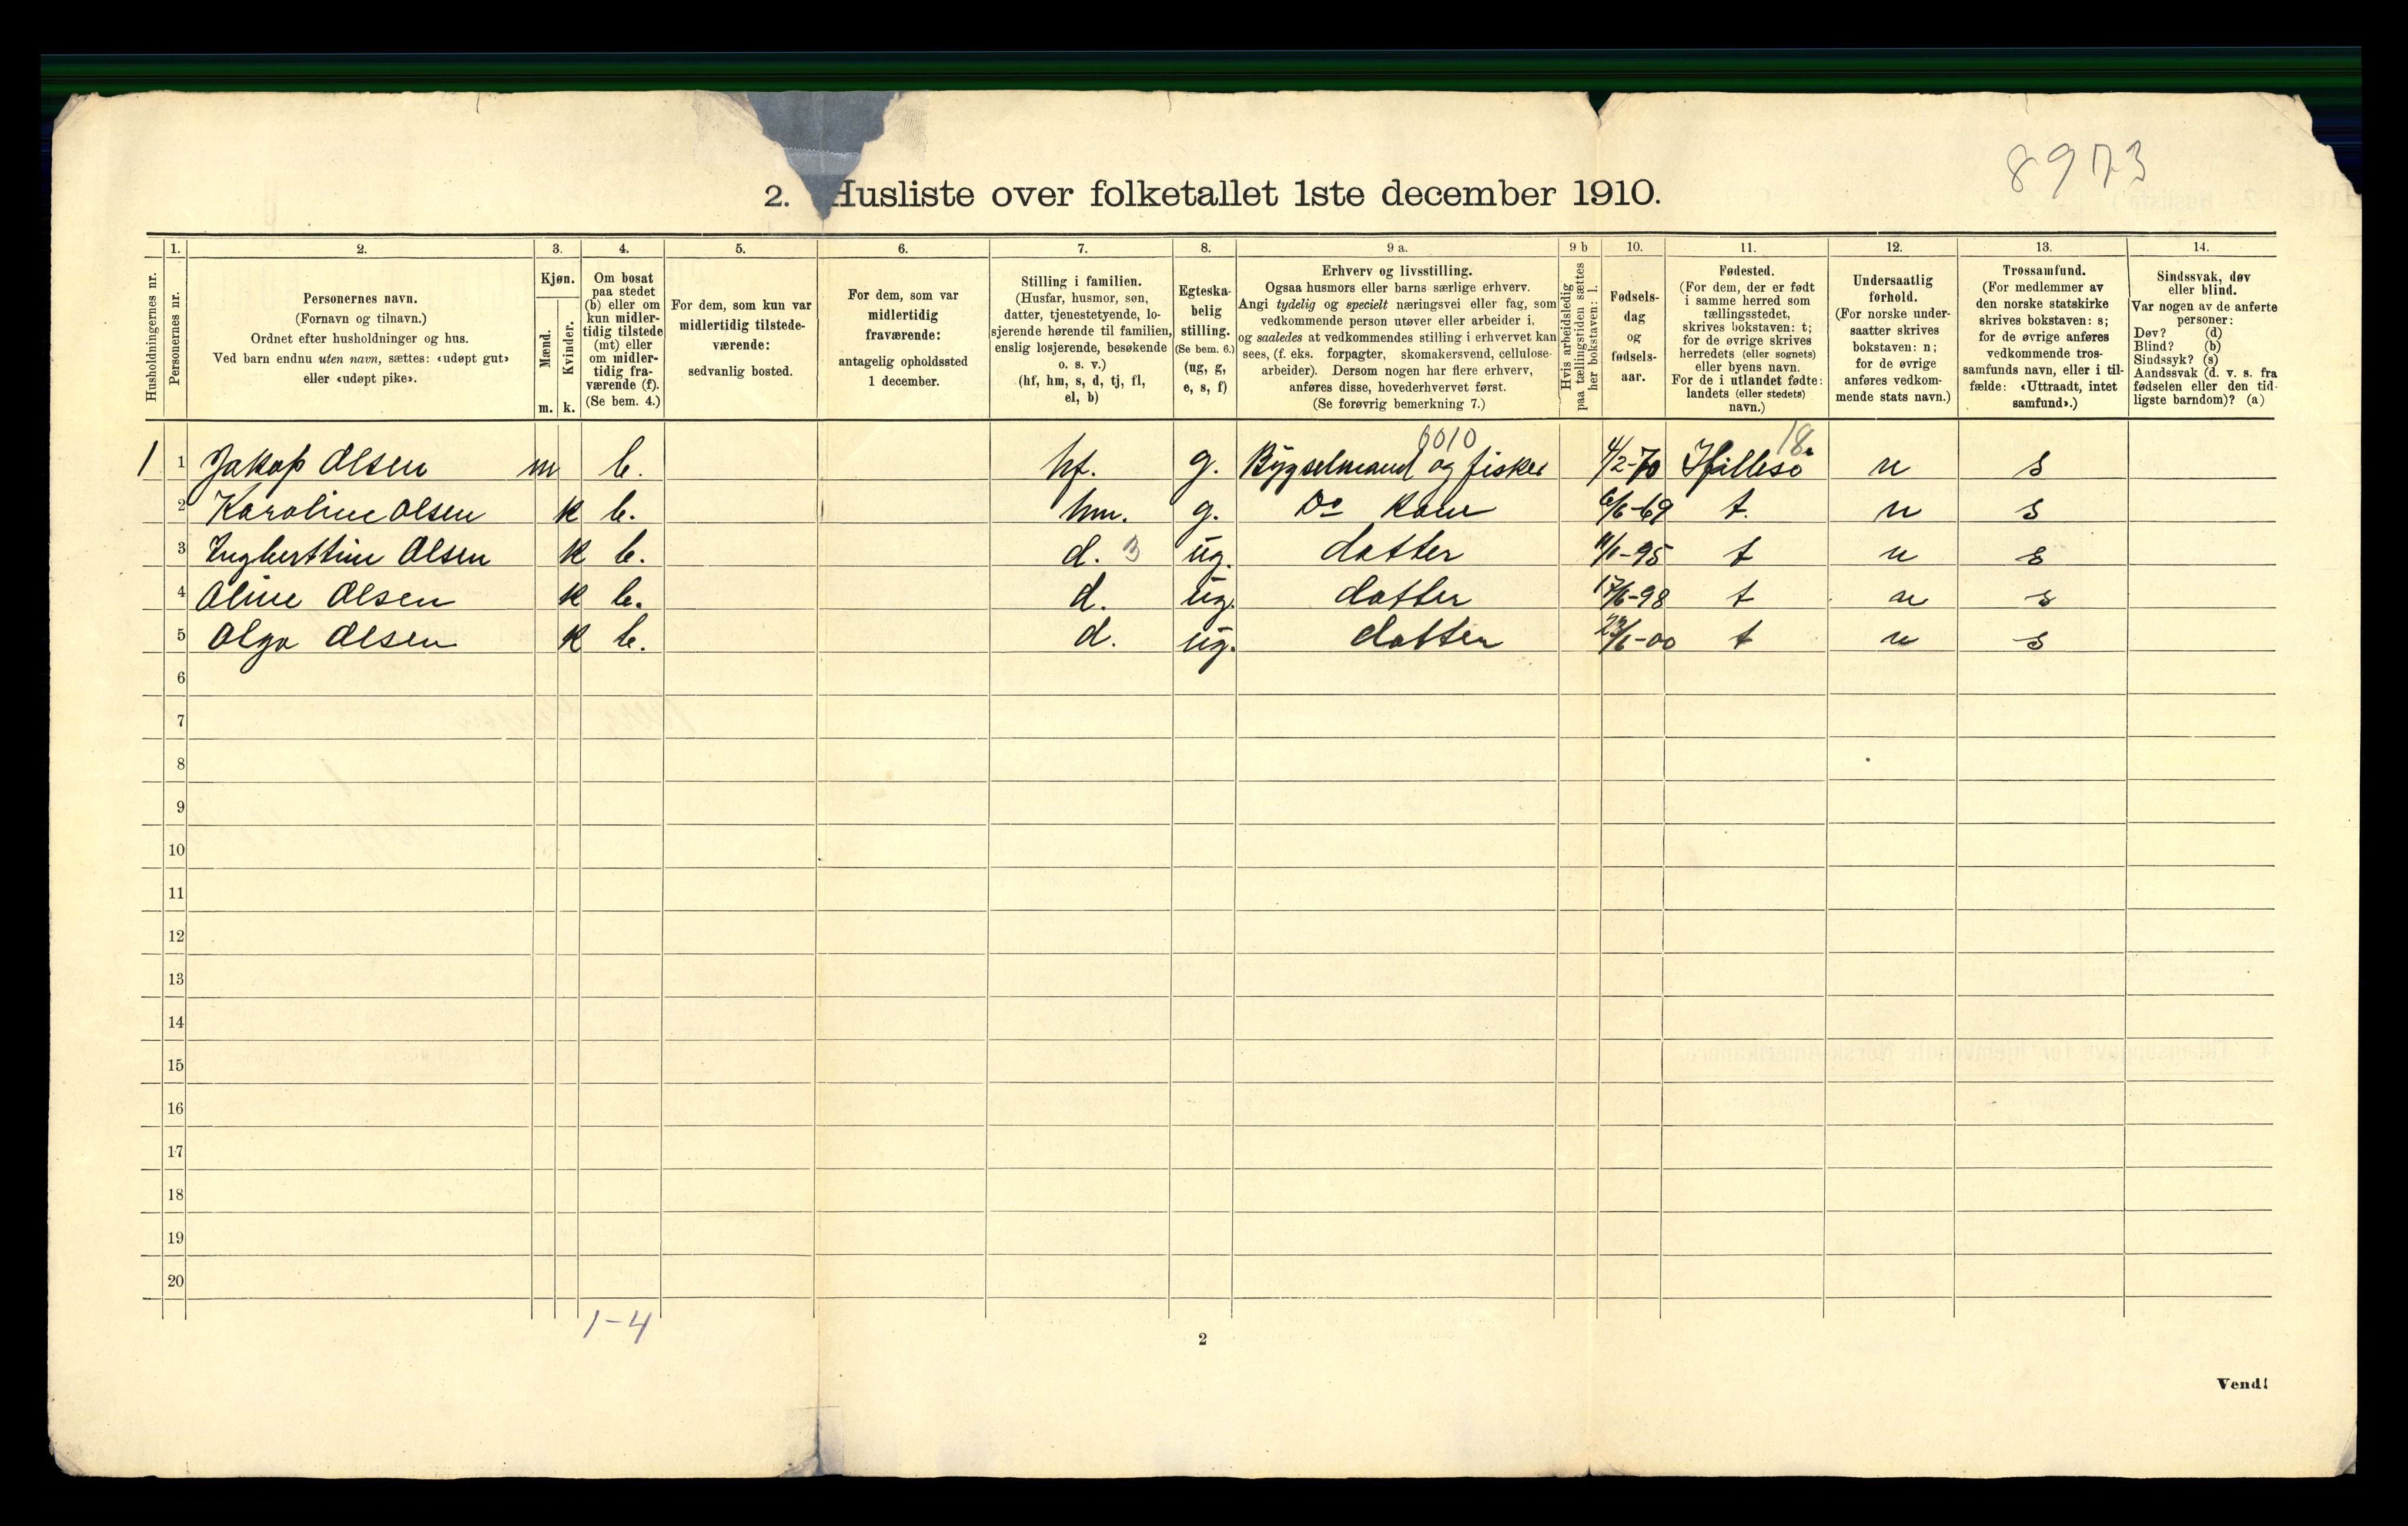 8973
2. Husliste over folketallet 1ste december 1910.
1. 2. 3. 4. 5. 6. 7. 8. 9 a. 9 b 10. 11. 12. 13. 14.
Husholdningernes nr.
Personernes nr.
Personernes navn.
(Fornavn og tilnavn.)
Ordnet efter husholdninger og hus.
Ved barn endnu uten navn, sættes: «udøpt gut»
eller «udøpt pike».
Kjøn.
Mænd.
Kvinder.
m. k.
Om bosat
paa stedet
(b) eller om
kun midler-
tidig tilstede
(mt) eller
om midler-
tidig fra-
værende (f).
(Se bem. 4.)
For dem, som kun var
midlertidig tilstede-
værende:
sedvanlig bosted.
For dem, som var
midlertidig
fraværende:
antagelig opholdssted
1 december.
Stilling i familien.
(Husfar, husmor, søn,
datter, tjenestetyende, lo-
sjerende hørende til familien,
enslig losjerende, besøkende
o. s. v.)
(hf, hm, s, d, tj, fl,
el, b)
Egteska-
belig
stilling.
(Se bem. 6.)
(ug, g,
e, s, f)
Erhverv og livsstilling.
Ogsaa husmors eller barns særlige erhverv.
Angi tydelig og specielt næringsvei eller fag, som
vedkommende person utøver eller arbeider i,
og saaledes at vedkommendes stilling i erhvervet kan
sees, (f. eks. forpagter, skomakersvend, cellulose-
arbeider). Dersom nogen har flere erhverv,
anføres disse, hovederhvervet først.
(Se forøvrig bemerkning 7.)
Hvis arbeidsledig
paa tællingstiden sættes
her bokstaven: l.
Fødsels-
dag
og
fødsels-
aar.
Fødested.
(For dem, der er født
i samme herred som
tællingsstedet,
skrives bokstaven: t;
for de øvrige skrives
herredets (eller sognets)
eller byens navn.
For de i utlandet fødte:
landets (eller stedets)
navn.)
Undersaatlig
forhold.
(For norske under-
saatter skrives
bokstaven: n;
for de øvrige
anføres vedkom-
mende stats navn.)
Trossamfund.
(For medlemmer av
den norske statskirke
skrives bokstaven: s;
for de øvrige anføres
vedkommende tros-
samfunds navn, eller i til-
fælde: «Uttraadt, intet
samfund».)
Sindssvak, døv
eller blind.
Var nogen av de anførte
personer:
Døv? (d)
Blind? (b)
Sindssyk? (s)
Aandssvak (d. v. s. fra
fødselen eller den tid-
ligste barndom)? (a)
0010 18.
1 1 Jakop Olsen m b. hf. g. Bygselmand og fisker 4/2-70 Hillesö n s
2 Karoline Olsen k b. hm. g. Do Kone 6/6-69 t. n s
3 Ingberttine Olsen k b. d. 3 ug. datter 11/1-95 t n s
4 Oline Olsen k b. d. ug. datter 17/6-98 t n s
5 Olga Olsen k b. d. ug. datter 23/1-00 t n s
6
7
8
9
10
11
12
13
14
15
16
17
18
19
20
1-4
2
Vend!